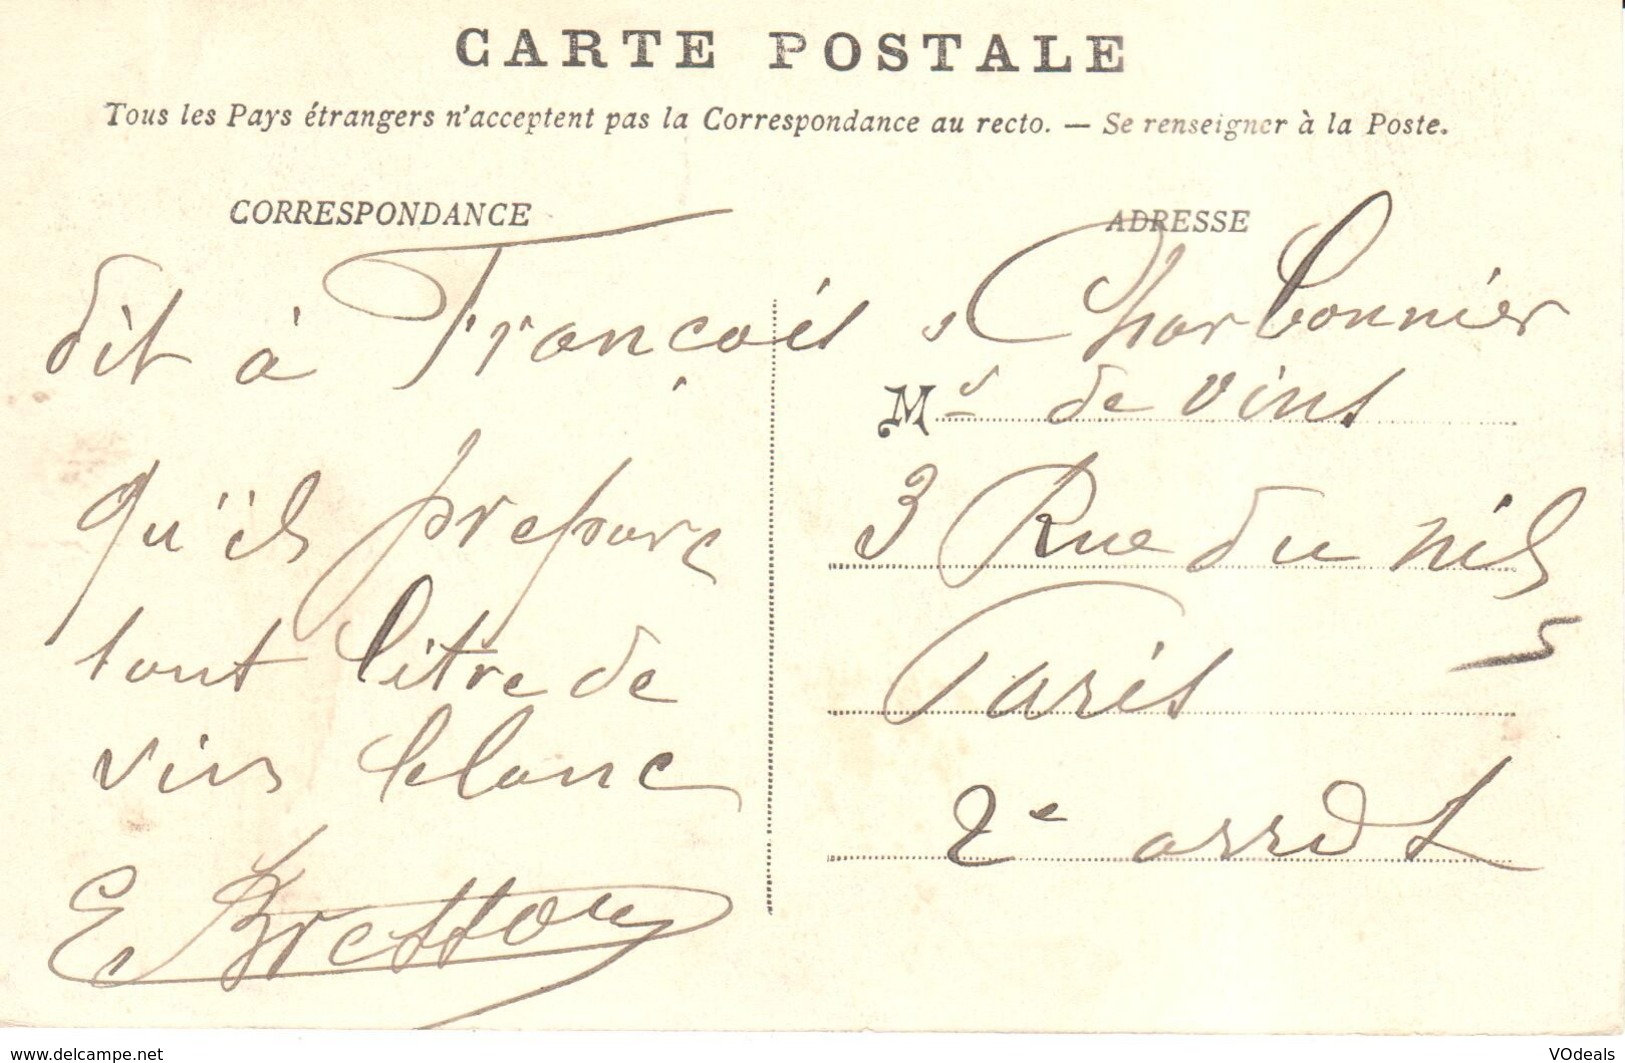 CARTE POSTALE
Tous les Pays étrangers n'acceptent pas la Correspondance au recto. — Se renseigner à la Poste.
CORRESPONDANCE
dit à François
qu'il prepare
tout litre de
vin blanc
E Bretton
ADRESSE
Charbonnier
Md de vins
3 Rue du Nil
Paris
2e arrdt
www.delcampe.net
VOdeals